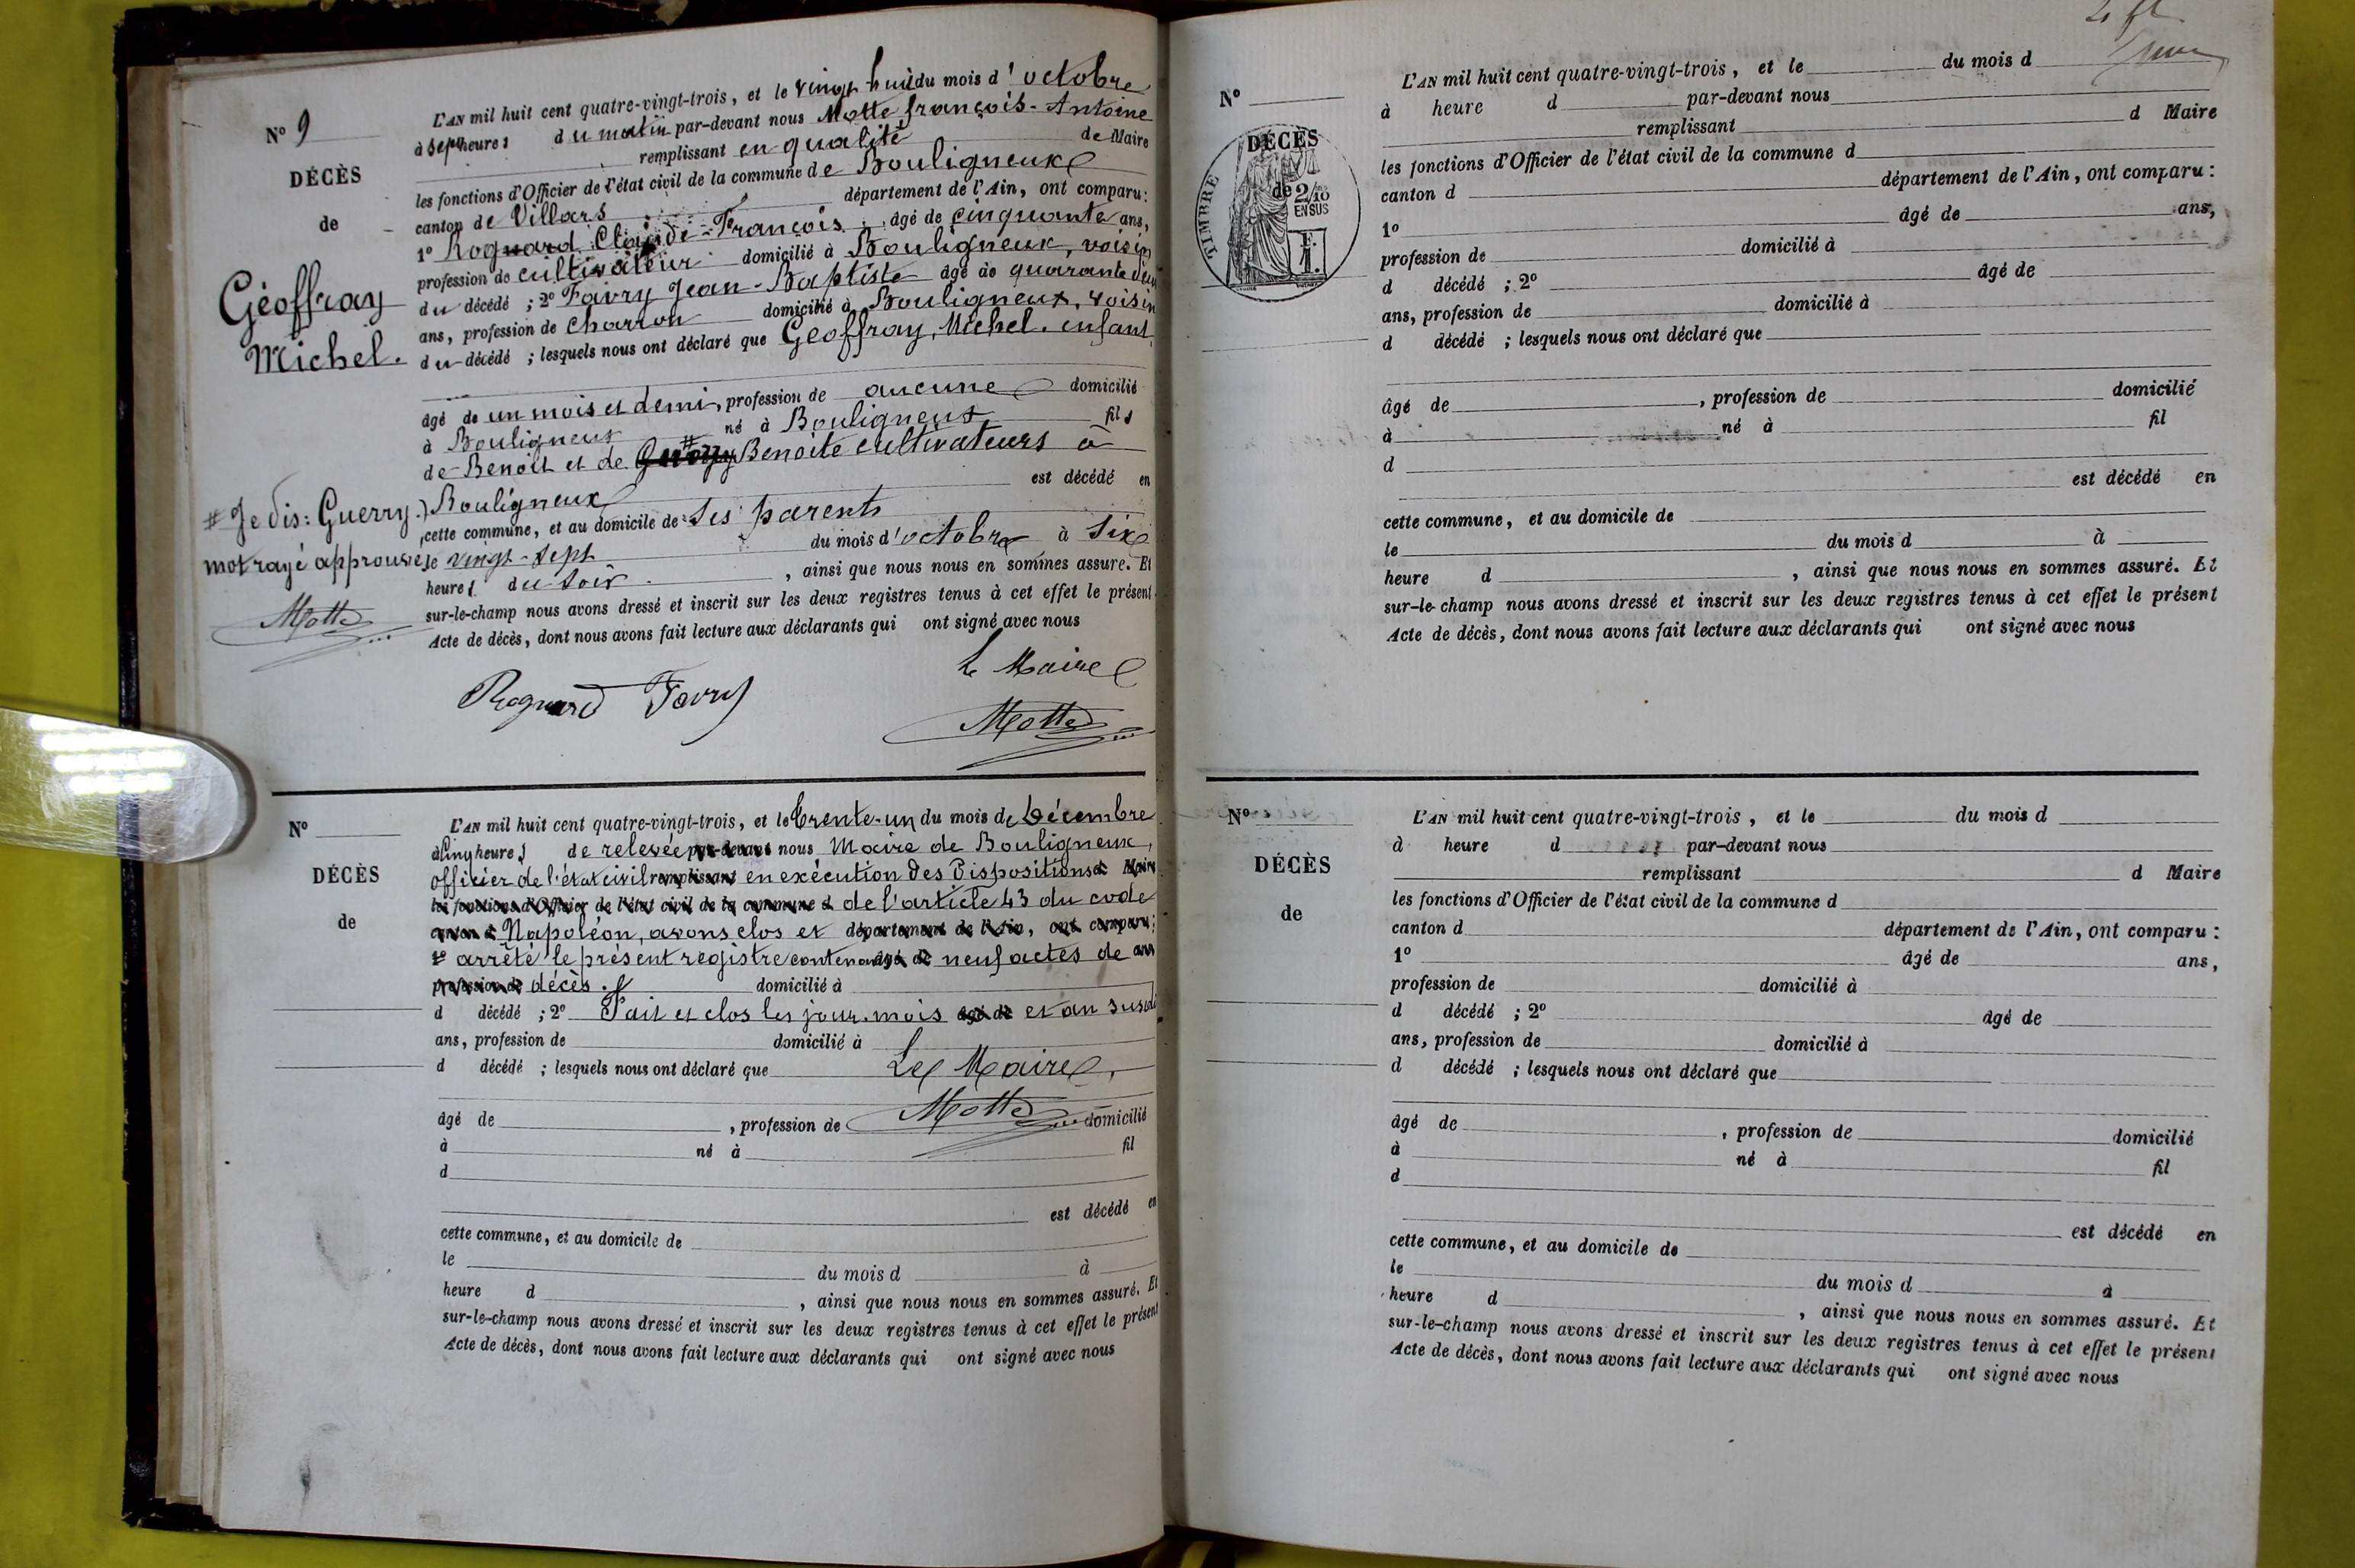 N° 9
DÉCÈS
de
Géoffray
Michel.
L'AN mil huit cent quatre-vingt-trois, et le vingt huit du mois d'octobre
à sept heures du matin par-devant nous Motte françois-Antoine
remplissant en qualité de Maire
les fonctions d'Officier de l'état civil de la commune de Bouligneux
canton de Villars département de l'Ain, ont comparu:
1° Rognard Claude-François, âgé de cinquante ans,
profession de cultivateur domicilié à Bouligneux, voisin
du décédé ; 2° Favry Jean-Baptiste âgé de quarante deux
ans, profession de charron domicilié à Bouligneux, voisin
du décédé ; lesquels nous ont déclaré que Geoffray, Michel. enfant,
âgé de un mois et demi, profession de aucune domicilié
à Bouligneux né à Bouligneux fils
de Benoît et de # Benoite cultivateurs à
Bouligneux est décédé en
cette commune, et au domicile de ses parents
le vingt-sept du mois d'octobre à six
heures du soir, ainsi que nous nous en sommes assuré. Et
sur-le-champ nous avons dressé et inscrit sur les deux registres tenus à cet effet le présent
Acte de décès, dont nous avons fait lecture aux déclarants qui ont signé avec nous
# Je dis: Guerry.)
mot rayé approuvé
Motte
Le Maire
Rognard Favry
Motte
N°
DÉCÈS
de
L'AN mil huit cent quatre-vingt-trois, et le trente-un du mois de Décembre
à cinq heures de relevée par-devant nous Maire de Bouligneux,
officier de l'état civil remplissant en exécution des Dispositions de Maire
les fonctions d'Officier de l'état civil de la commune d de l'article 43 du code
canton d Napoléon, avons clos et département de l'Ain, ont comparu:
1° arrêté le présent registre contenant âgé de neuf actes de ans
profession de décès. domicilié à
d décédé ; 2° Fait et clos les jour, mois âgé de et an susdit
ans, profession de domicilié à
d décédé ; lesquels nous ont déclaré que Le Maire,
âgé de , profession de Motte domicilié
à né à fil
d
est décédé en
cette commune, et au domicile de
le du mois d à
heure d , ainsi que nous nous en sommes assuré. Et
sur-le-champ nous avons dressé et inscrit sur les deux registres tenus à cet effet le présent
Acte de décès, dont nous avons fait lecture aux déclarants qui ont signé avec nous
N°
DÉCÈS
de
TIMBRE
2/10
EN SUS
L'AN mil huit cent quatre-vingt-trois, et le du mois d
à heure d par-devant nous
remplissant d Maire
les fonctions d'Officier de l'état civil de la commune d
canton d département de l'Ain, ont comparu :
1° âgé de ans,
profession de domicilié à
d décédé ; 2° âgé de
ans, profession de domicilié à
d décédé ; lesquels nous ont déclaré que
âgé de , profession de domicilié
à né à fil
d
est décédé en
cette commune, et au domicile de
le du mois d à
heure d , ainsi que nous nous en sommes assuré. Et
sur-le-champ nous avons dressé et inscrit sur les deux registres tenus à cet effet le présent
Acte de décès, dont nous avons fait lecture aux déclarants qui ont signé avec nous
N°
DÉCÈS
de
L'AN mil huit cent quatre-vingt-trois, et le du mois d
à heure d par-devant nous
remplissant d Maire
les fonctions d'Officier de l'état civil de la commune d
canton d département de l'Ain, ont comparu :
1° âgé de ans,
profession de domicilié à
d décédé ; 2° âgé de
ans, profession de domicilié à
d décédé ; lesquels nous ont déclaré que
âgé de , profession de domicilié
à né à fil
d
est décédé en
cette commune, et au domicile de
le du mois d à
heure d , ainsi que nous nous en sommes assuré. Et
sur-le-champ nous avons dressé et inscrit sur les deux registres tenus à cet effet le présent
Acte de décès, dont nous avons fait lecture aux déclarants qui ont signé avec nous